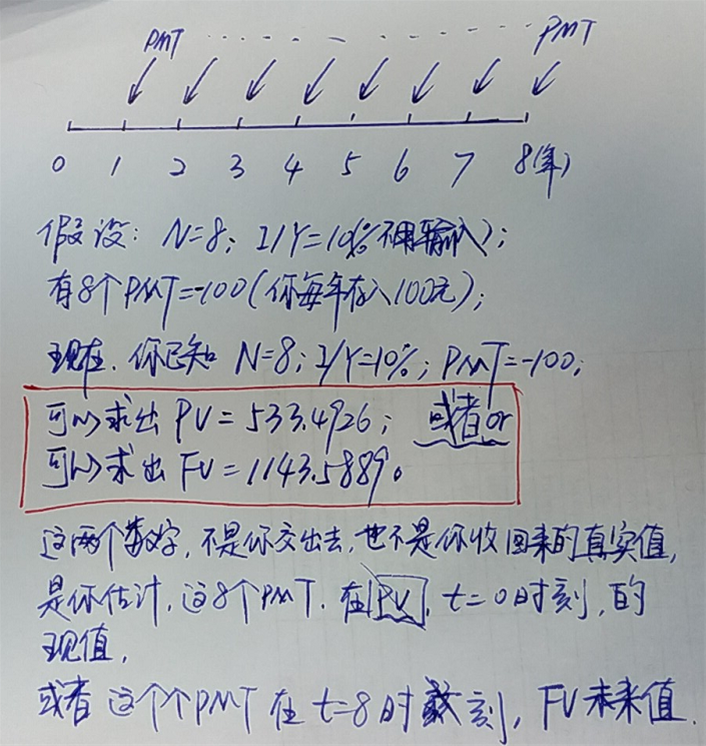 PMT - - - - - - - - PMT
0 1 2 3 4 5 6 7 8(年)
假设: N=8; I/Y=10(%不用输入);
有8个PMT=-100(你每年存入100元);
现在,你已知 N=8; I/Y=10%; PMT=-100;
可以求出 PV=533.4926; 或者or
可以求出 FV=1143.5889。
这两个数字,不是你交出去,也不是你收回来的真实值,
是你估计,这8个PMT,在PV,t=0时刻,的
现值,
或者这个个PMT在t=8时刻,FV未来值.